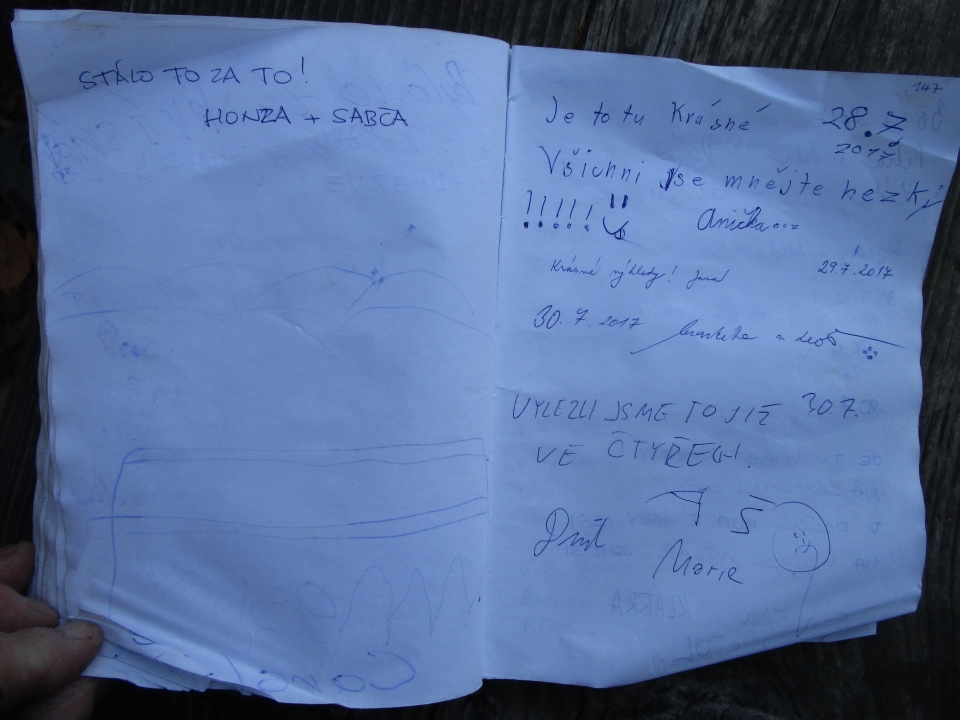 STÁLO TO ZA TO!
HONZA + SABČA
147
Je to tu Krásné 28.7
2017
Všichni se mnějte hezkj
!!!!!!
Anička...
Krásné výhledy! Jana 29.7.2017
30.7.2017 Markétka a Leoš
VYLEZLI JSME TO JIŽ 30.7.
VE ČTYŘECH!
Š
Marie
KLARKA